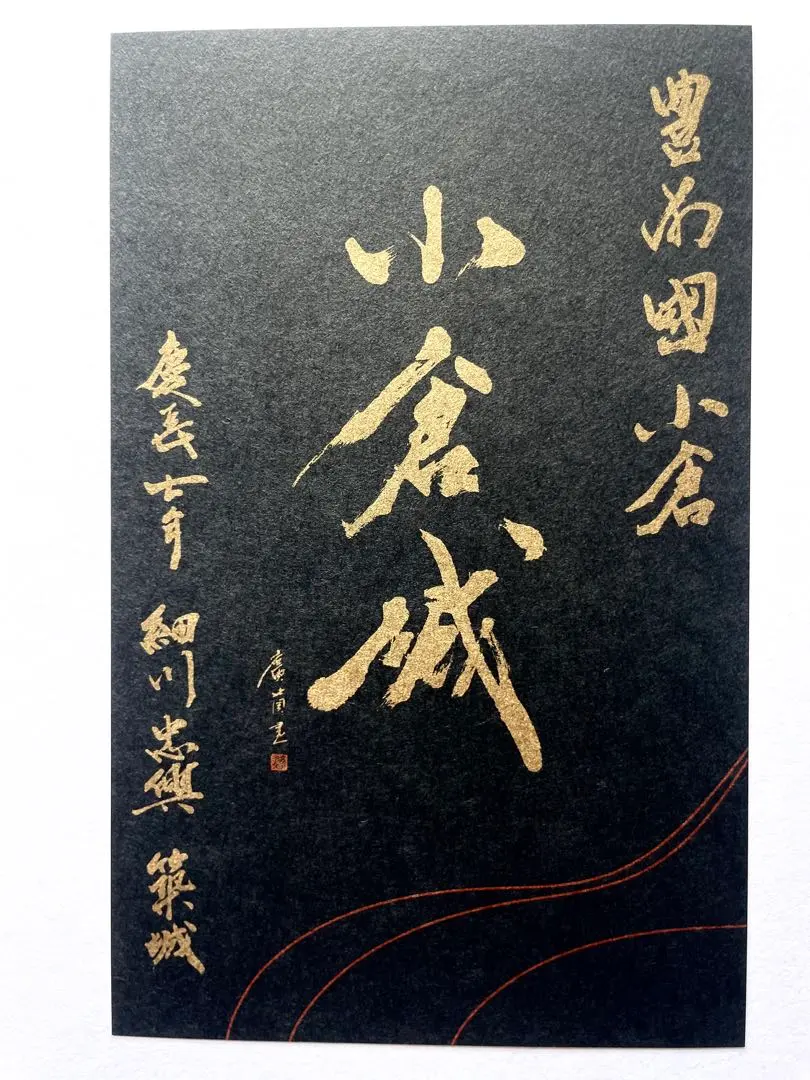 豊前國小倉
小倉城
慶長七年 細川忠興 築城